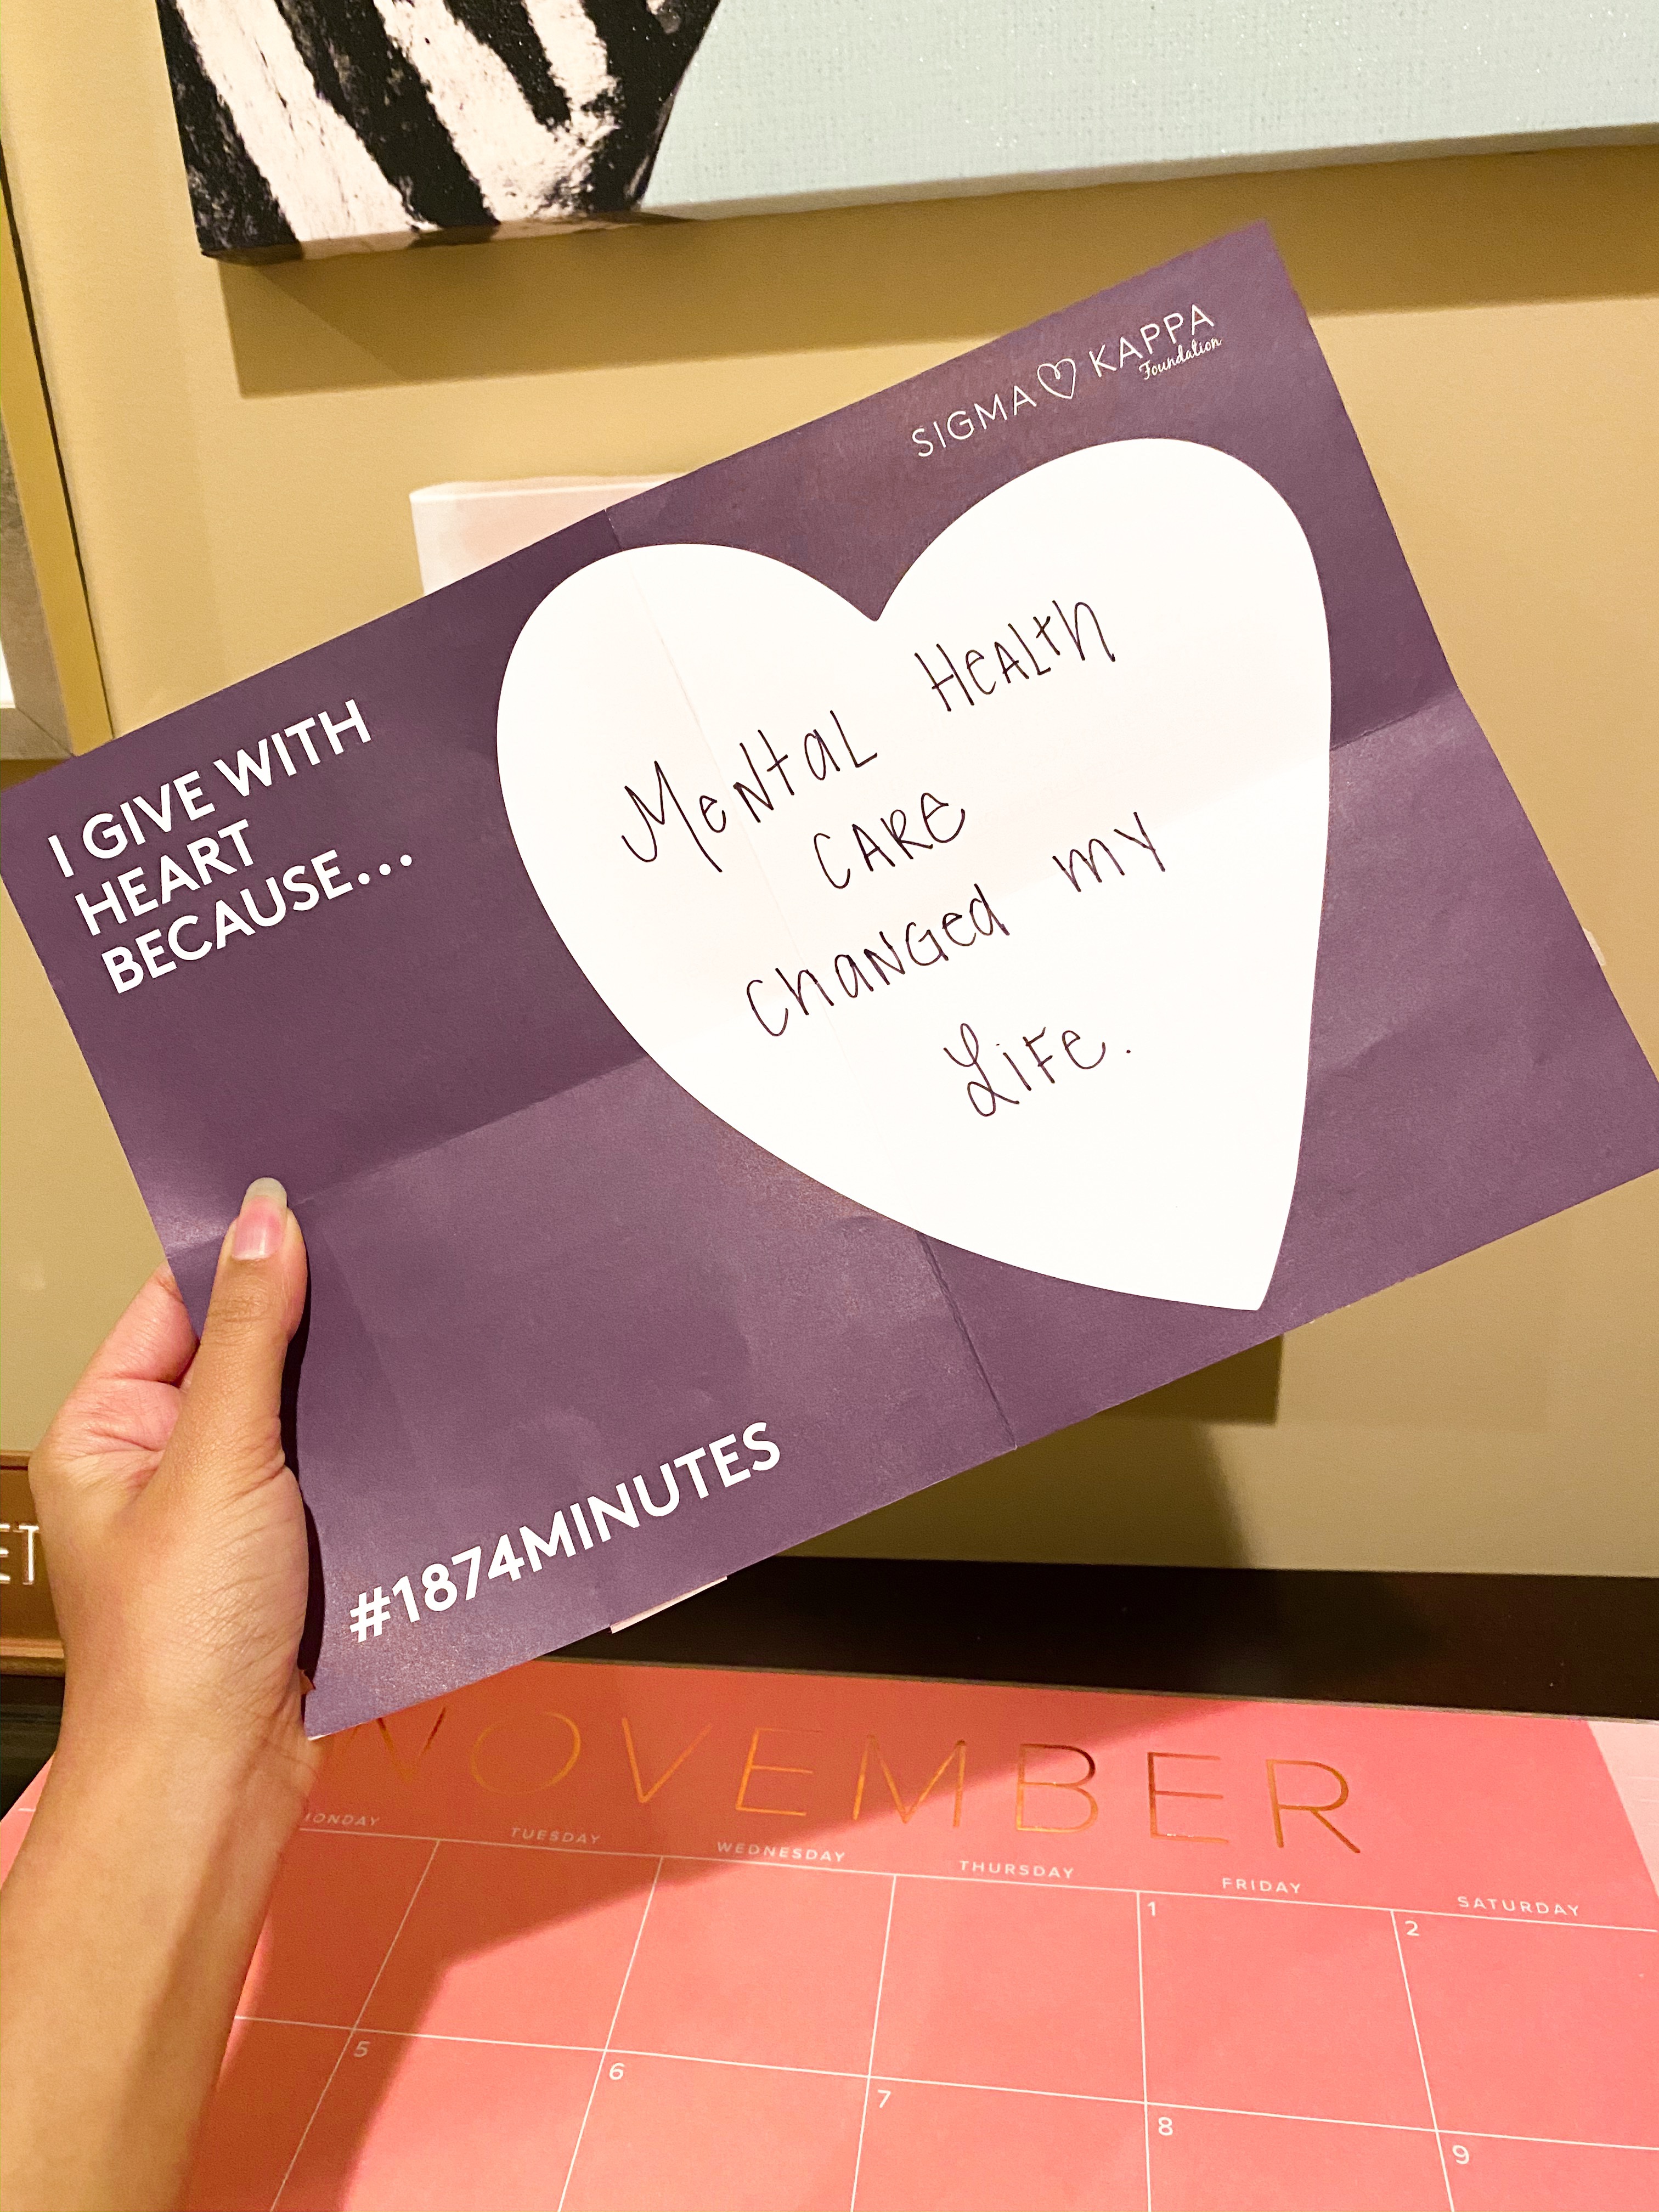 SIGMA KAPPA
Foundation
I GIVE WITH
HEART
BECAUSE...
Mental Health
Care
Changed my
Life.
#1874MINUTES
ET
NOVEMBER
MONDAY TUESDAY WEDNESDAY THURSDAY FRIDAY SATURDAY
1 2
5 6 7 8 9